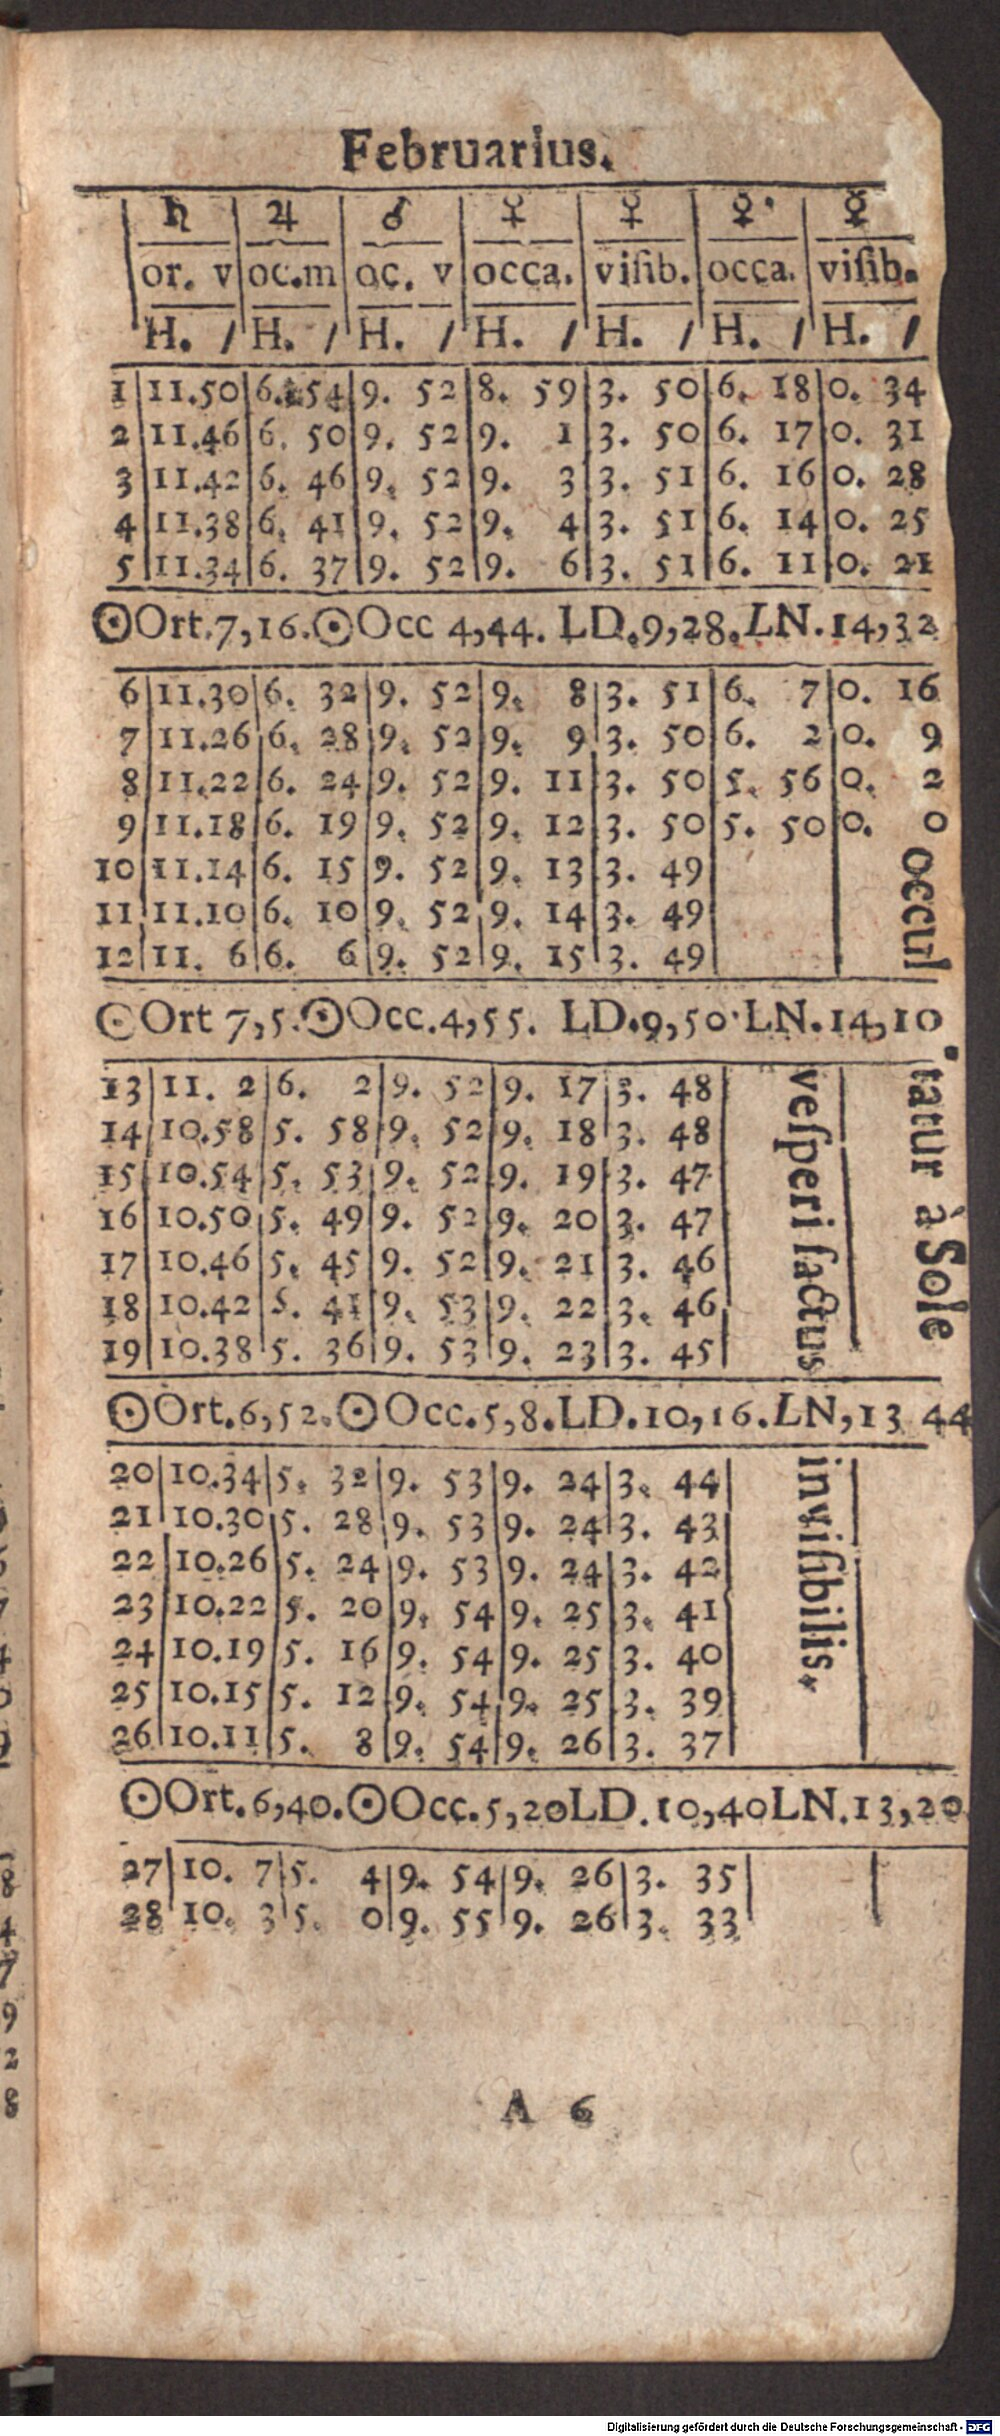 Februarius.
♄ ♃ ♂ ♀ ♀ ☿ ☿
or. v oc.m oc. v occa. viſib. occa. viſib.
H. / H. / H. / H. / H. / H. / H. /
1 11.50 6. 54 9. 52 8. 59 3. 50 6. 18 0. 34
2 11.46 6. 50 9. 52 9. 1 3. 50 6. 17 0. 31
3 11.42 6. 46 9. 52 9. 3 3. 51 6. 16 0. 28
4 11.38 6. 41 9. 52 9. 4 3. 51 6. 14 0. 25
5 11.34 6. 37 9. 52 9. 6 3. 51 6. 11 0. 21
☉Ort.7,16.☉Occ 4,44. LD.9,28.LN.14,32
6 11.30 6. 32 9. 52 9. 8 3. 51 6. 7 0. 16
7 11.26 6. 28 9. 52 9. 9 3. 50 6. 2 0. 9
8 11.22 6. 24 9. 52 9. 11 3. 50 5. 56 0. 2
9 11.18 6. 19 9. 52 9. 12 3. 50 5. 50 0. 0
10 11.14 6. 15 9. 52 9. 13 3. 49
11 11.10 6. 10 9. 52 9. 14 3. 49
12 11. 6 6. 6 9. 52 9. 15 3. 49
☉Ort 7,5.☉Occ.4,55. LD.9,50.LN.14,10
13 11. 2 6. 2 9. 52 9. 17 3. 48
14 10.58 5. 58 9. 52 9. 18 3. 48
15 10.54 5. 53 9. 52 9. 19 3. 47
16 10.50 5. 49 9. 52 9. 20 3. 47
17 10.46 5. 45 9. 52 9. 21 3. 46
18 10.42 5. 41 9. 53 9. 22 3. 46
19 10.38 5. 36 9. 53 9. 23 3. 45
☉Ort.6,52.☉Occ.5,8.LD.10,16.LN,13 44
20 10.34 5. 32 9. 53 9. 24 3. 44
21 10.30 5. 28 9. 53 9. 24 3. 43
22 10.26 5. 24 9. 53 9. 24 3. 42
23 10.22 5. 20 9. 54 9. 25 3. 41
24 10.19 5. 16 9. 54 9. 25 3. 40
25 10.15 5. 12 9. 54 9. 25 3. 39
26 10.11 5. 8 9. 54 9. 26 3. 37
☉Ort.6,40.☉Occ.5,20LD.10,40LN.13,20
27 10. 7 5. 4 9. 54 9. 26 3. 35
28 10. 3 5. 0 9. 55 9. 26 3. 33
veſperi factus inviſibilis.
occultatur à Sole
A 6
Digitalisierung gefördert durch die Deutsche Forschungsgemeinschaft - DFG